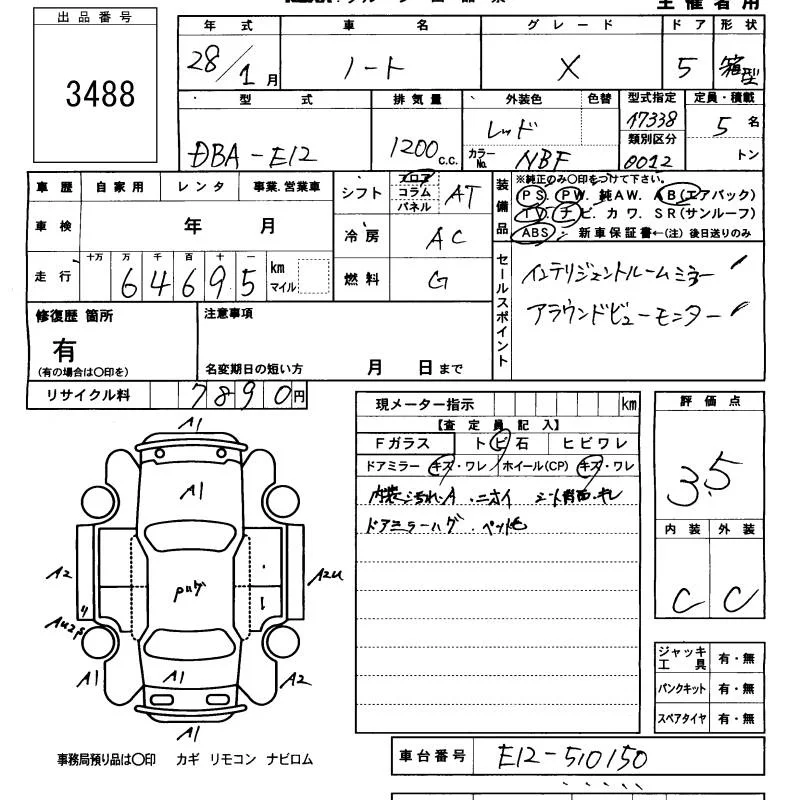 出品番号
3488
年式 車名 グレード ドア 形状
28/1月 ノート X 5 箱型
型式 排気量 外装色 色替 型式指定 定員・積載
DBA-E12 1200 c.c. レッド 17338 5名
カラーNo. NBF 類別区分 0012 トン
車歴 自家用 レンタ 事業.営業車
車検 年 月
走行 十万 万 千 百 十 一
64695 km マイル
シフト フロア コラム パネル AT
冷房 AC
燃料 G
装備品 ※純正のみ〇印をつけて下さい。
PS. PW. 純AW. AB(エアバック)
TV. ナビ. カワ. SR(サンルーフ)
ABS. 新車保証書←(注) 後日送りのみ
セールスポイント
インテリジェントルームミラー
アラウンドビューモニター
修復歴 箇所
有
(有の場合は〇印を)
注意事項
名変期日の短い方 月 日まで
リサイクル料 7890円
現メーター指示 km
【査定員記入】
Fガラス トビ石 ヒビワレ
ドアミラー キズ・ワレ ホイール(CP) キズ・ワレ
内装ヨゴレ.A .ニオイ シート背面.キレ
ドアミラーハゲ.ペット毛
評価点
3.5
内装 外装
C C
ジャッキ工具 有・無
パンクキット 有・無
スペアタイヤ 有・無
A1
A1
A2
A2U
Pハゲ
A1
A1
A2
A1
事務局預り品は〇印 カギ リモコン ナビロム
車台番号 E12-510150